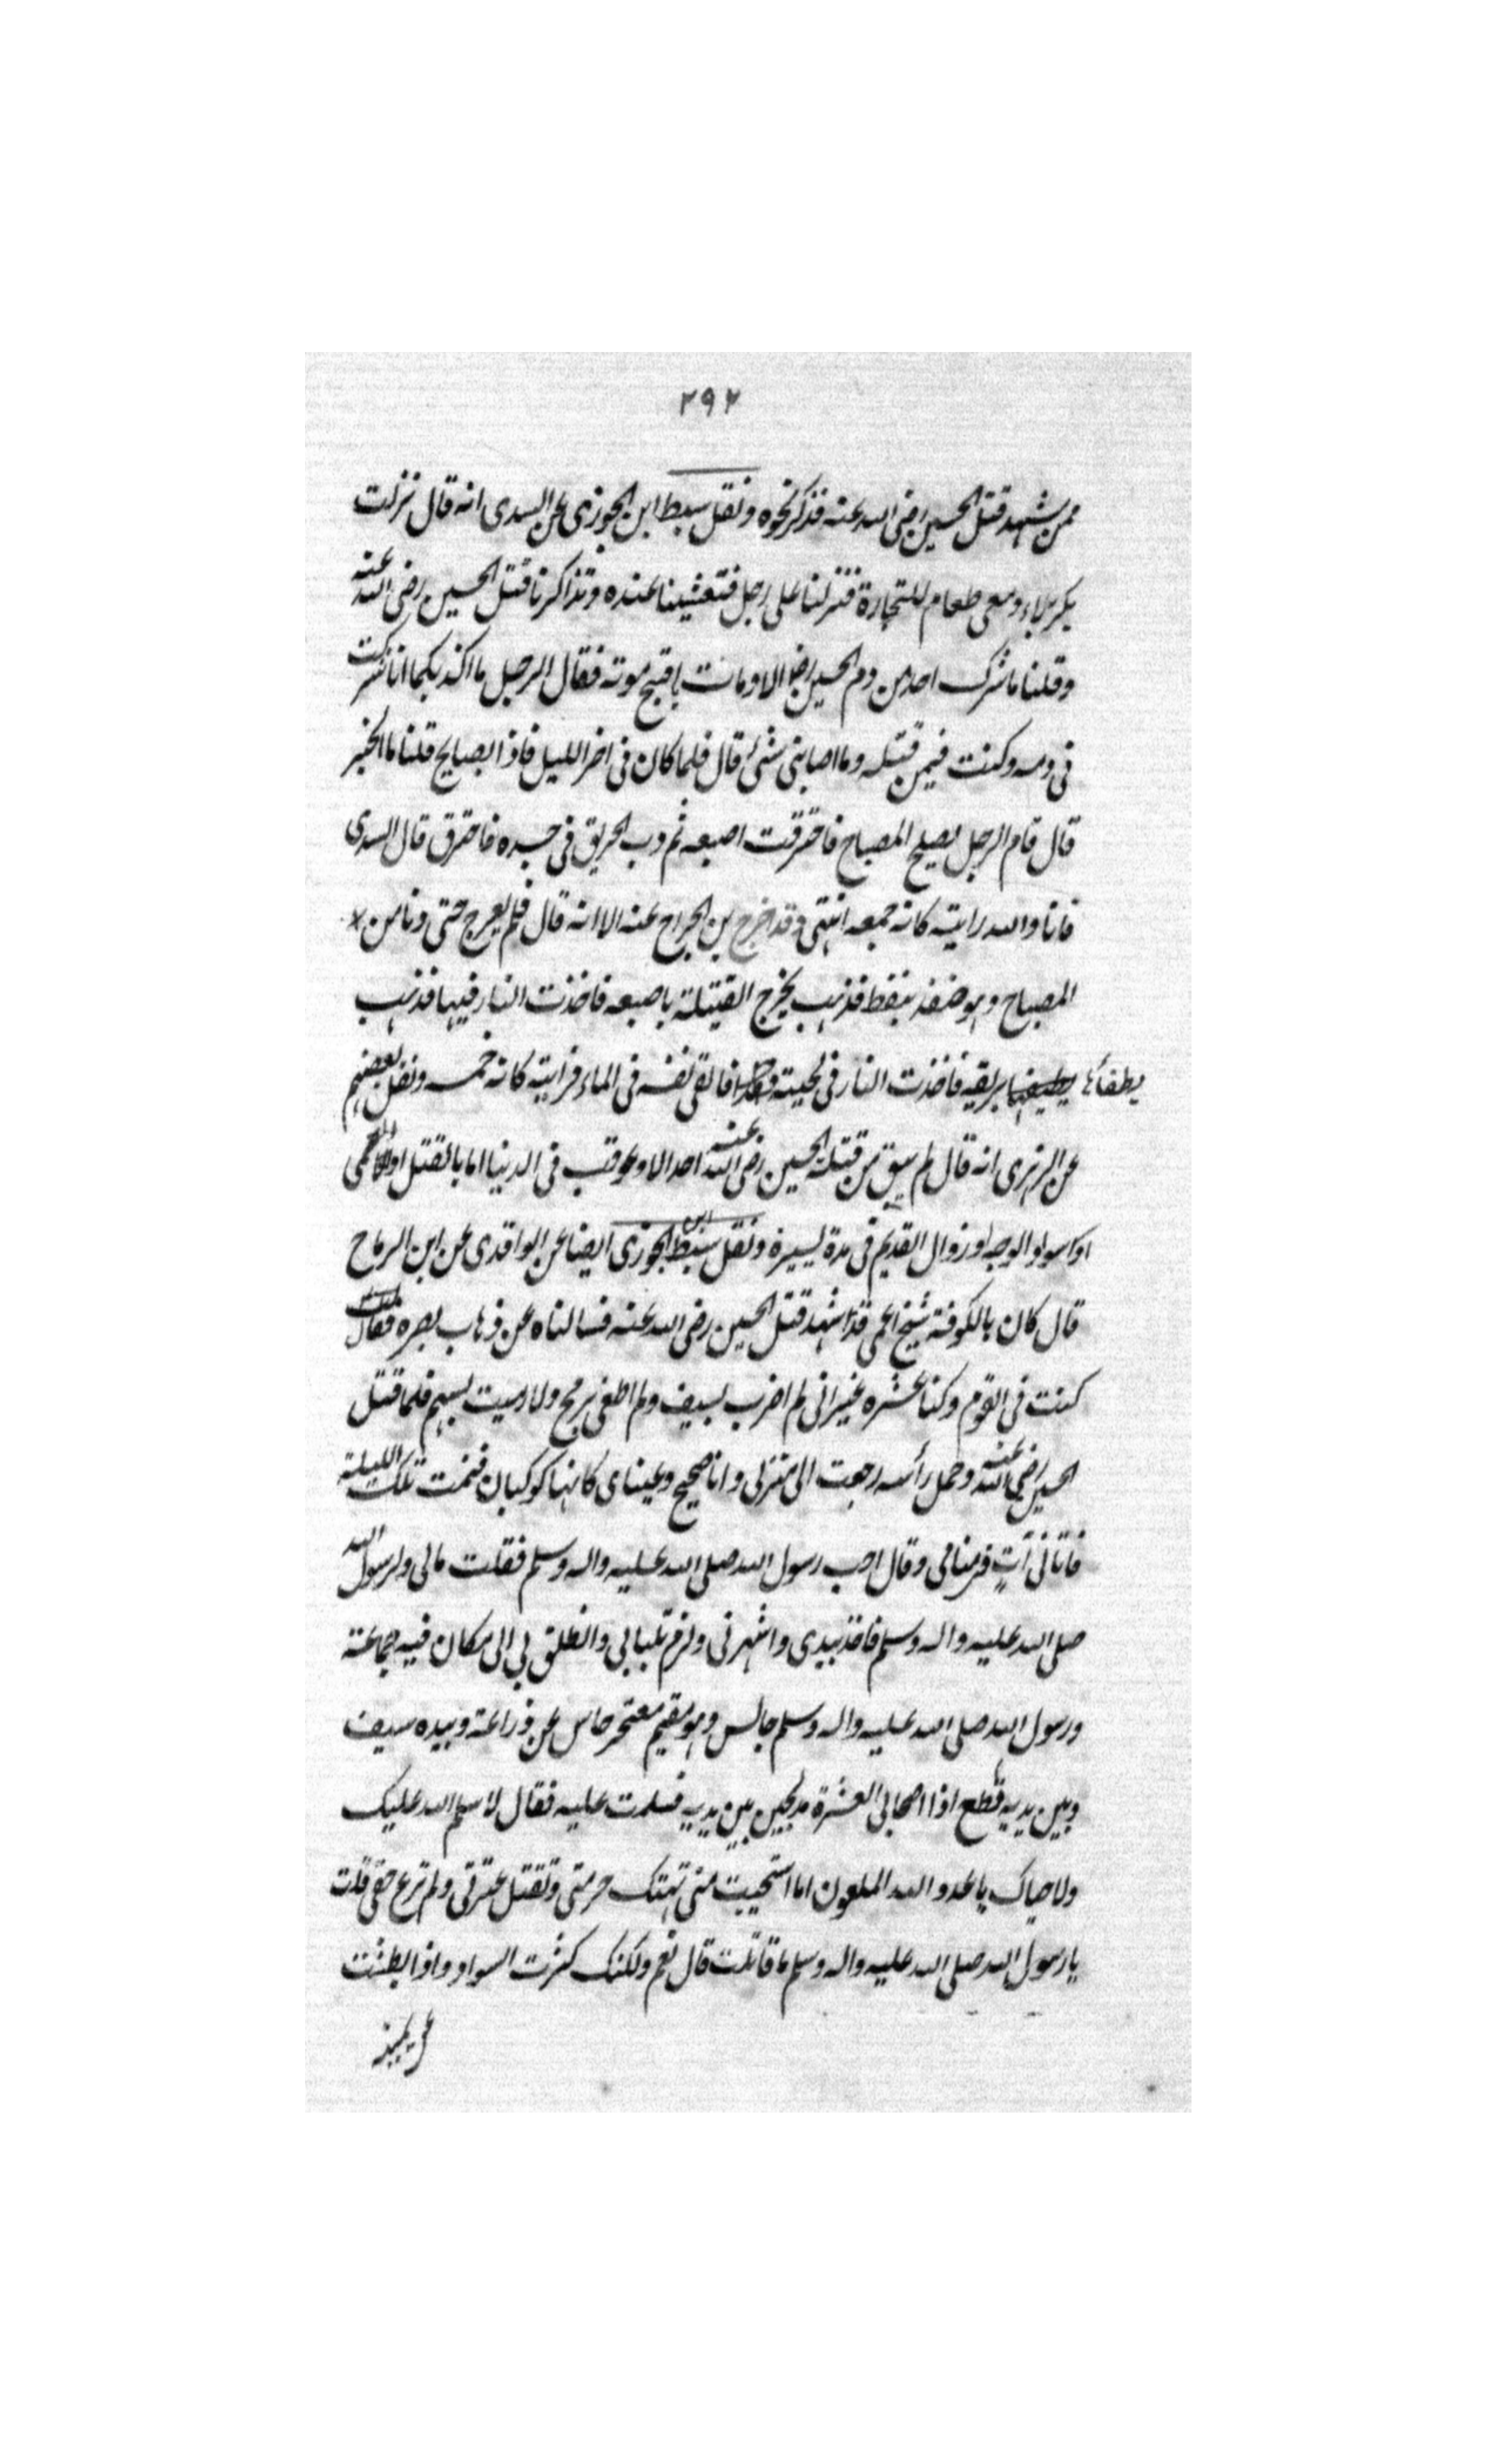 ٢٩٢
ممن شهد قتل الحسين رضى الله عنه فذكر نحوه ونقل سبط ابن الجوزى عن السدى انه قال نزلت
بكربلاء ومعى طعام للتجارة فنزلنا على رجل فتعشينا عنده وتذاكرنا قتل الحسين رضى الله عنه
وقلنا ما شرك احد من دم الحسين رضا الا ومات باقبح موته فقال الرجل ما اكذبكما انا شركت
فى دمه وكنت فيمن قتله وما اصابنى شئ قال فلما كان فى اخر الليل فاذا بصايح قلنا ما الخبر
قال قام الرجل يصلح المصباح فاحترقت اصبعه ثم دب الحريق فى جسده فاحترق قال السدى
فانا والله رايته كانه حممه انتهى وقد اخرج بن الجراح عنه الا انه قال فلم يعرج حتى دنا من
المصباح وهو يتقد بنفط فذهب يخرج الفتيلة باصبعه فاخذت النار فيها فذهب
يطفأها بريقه فاخذت النار فى لحيته فالقى نفسه فى الماء فرايته كانه حممه ونقل بعضهم
عن الزهرى انه قال لم يبق من قتلة الحسين رضى الله عنه احد الا وعوقب فى الدنيا اما بالقتل او العمى
او اسواد الوجه او زوال القديم فى مدة يسيرة ونقل سبط ابن الجوزى ايضا عن الواقدى عن ابن الرماح
قال كان بالكوفة شيخ اعمى قد شهد قتل الحسين رضى الله عنه فسالناه عن ذهاب بصره فقال
كنت فى القوم وكنا عشره غير انى لم اضرب بسيف ولم اطعن برمح ولا رميت بسهم فلما قتل
الحسين رضى الله عنه وحمل رأسه رجعت الى منزلى وانا صحيح وعيناى كانها كوكبان فنمت تلك الليلة
فاتانى آتٍ فى منامى وقال اجب رسول الله صلى الله عليه واله وسلم فقلت مالى ولرسول الله
صلى الله عليه واله وسلم فاخذ بيدى واشهرنى ولزم تلبابى وانطلق بى الى مكان فيه جماعة
ورسول الله صلى الله عليه واله وسلم جالس وهو مقيم معتجر حاسر عن ذراعة وبيده سيف
وبين يديه قطع اذا اصحابى العشرة مذبحين بين يديه فسلمت عليه فقال لا سلم الله عليك
ولا حياك يا عدو الله الملعون اما استحييت منى تهتك حرمتى وتقتل عترتى ولم ترع حقى قلت
يا رسول الله صلى الله عليه واله وسلم ما قاتلت قال نعم ولكنك كثرت السواد واذا بطشت
عن يمينه